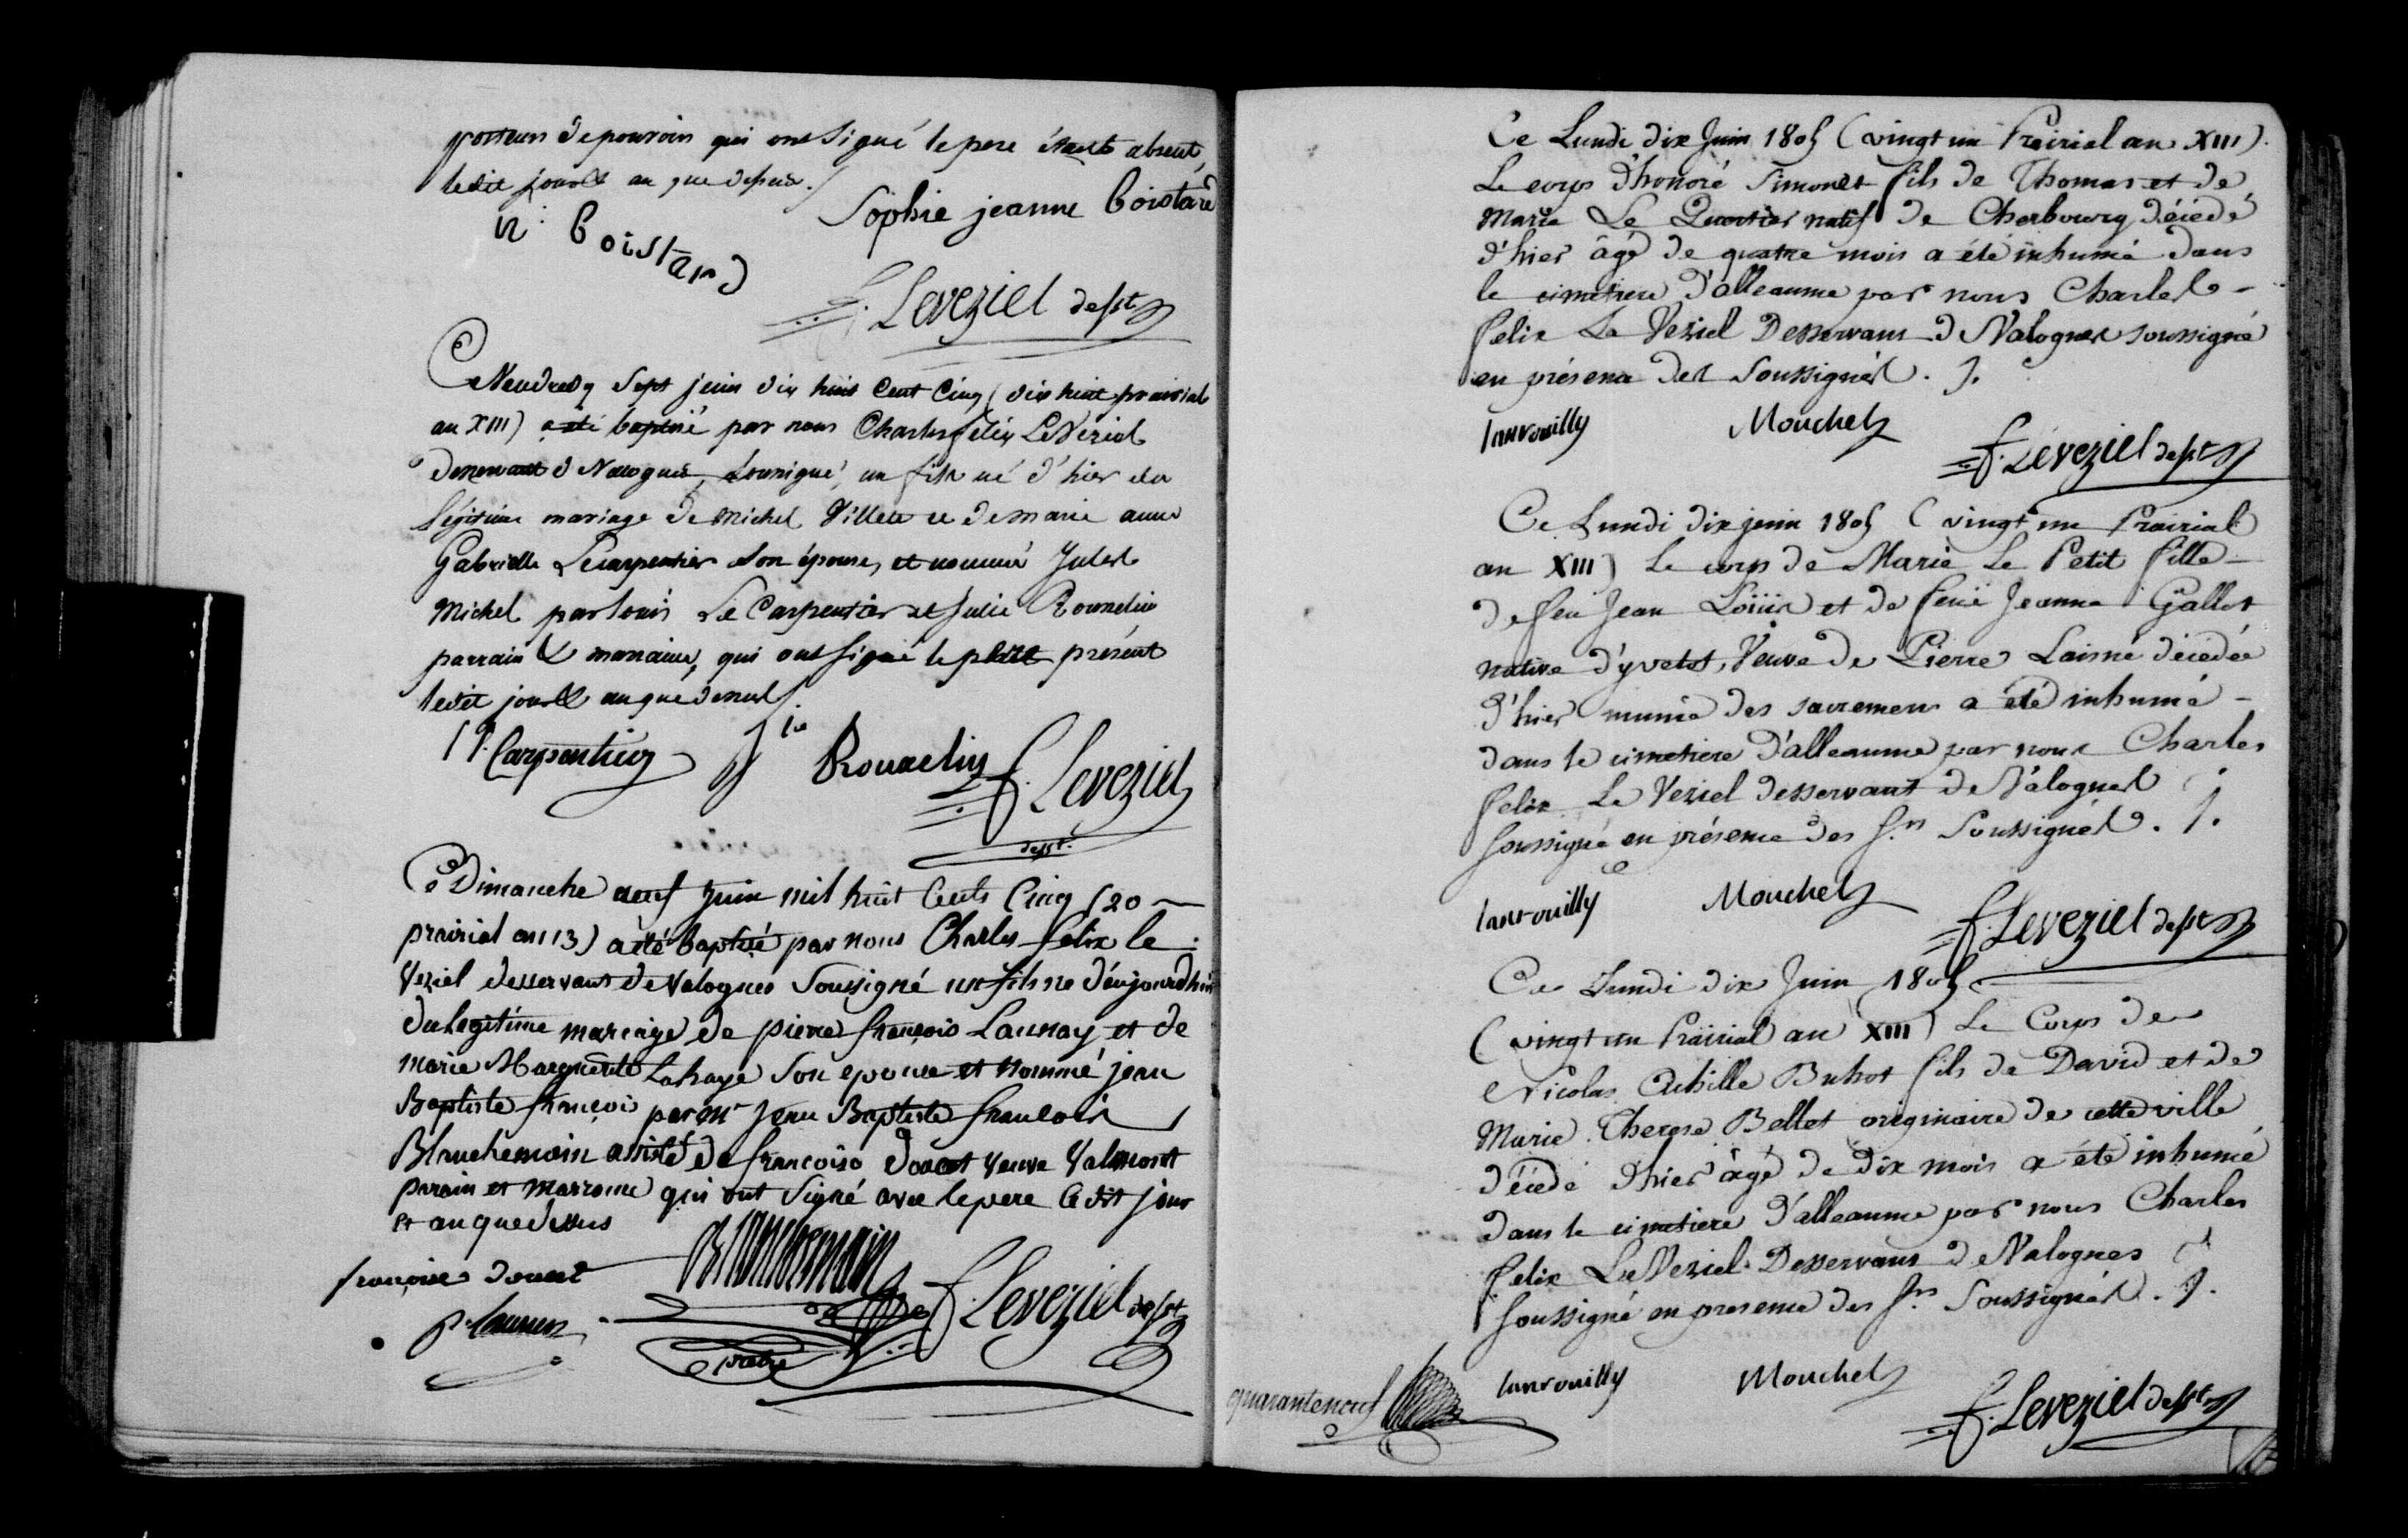 porteurs de pouvoirs qui ont signé le pere étant absent,
ledit jour & an que dessus.
Sophie jeanne boistard
n: boistard
f. Leveziel desst
Ce Vendredy Sept juin dix huit Cent Cinq (dix huit prairial
an XIII) a été baptisé par nous Charles felix Le Veziel
desservant d Valognes, soussigné, un fils né d'hier du
légitime mariage de Michel Villette et de marie anne
Gabrielle Lecarpentier son épouse, et nommé Jules
Michel par louis Le Carpentier et Julie Rouxelin
parrain & marraine, qui ont signé le père présent
ledit jour & an que dessus.
Carpentier
Jie Rouxelin
f. Leveziel
desst.
Ce Dimanche neuf Juin mil huit Cents Cinq (20
prairial an 13) a été baptisé par nous Charles felix le
Veziel desservant de Valognes Soussigné un fils né d'aujourdhui
du legitime mariage de pierre françois Launay et de
marie Marguerite Lahaye Son epouse et Nommé jean
Baptiste françois par Mr Jean Baptiste francois
Blanchemain assisté de françoise douet Veuve Valmont
parain et marraine qui ont Signé avec le pere le dit jour
et an que dessus
françoise douet
Blanchemain
p. launay
pretre
f. Leveziel desst
Ce Lundi dix Juin 1805 (vingt un Prairial an XIII).
Le corps d'honoré Simonet fils de Thomas et de
Marie Le Quertier natif de Cherbourg décédé
d'hier âgé de quatre mois a été inhumé dans
le cimetiere d'alleaume par nous Charles
felix Le Veziel Desservant d Valognes soussigné
en présence des Soussignés. /.
lanrouilly
Mouchel
f. Leveziel desst
Ce Lundi dix juin 1805 (vingt un Prairial
an XIII) Le corps de Marie Le Petit fille
de feu Jean Loüis et de feüe Jeanne Gallot
native d'yvetot, Veuve de Pierre Laisné décédée
d'hier munie des sacremens a été inhumé
dans le cimetiere d'alleaume par nous Charles
felix Le Veziel desservant de Valognes
soussigné en présence des Srs Soussignés. /.
lanrouilly
Mouchel
f. Leveziel desst
Ce Lundi dix Juin 1805
(vingt un Prairial an XIII) Le Corps de
Nicolas Achille Buhot fils de David et de
Marie Therese Bellet originaire de cette ville
décédé d'hier âgé de dix mois a été inhumé
dans le cimetiere d'alleaume par nous Charles
felix Le Veziel Desservant d Valognes
soussigné en presence des Srs Soussignés. /.
lanrouilly
Mouchel
f. Leveziel desst
quaranteneuf